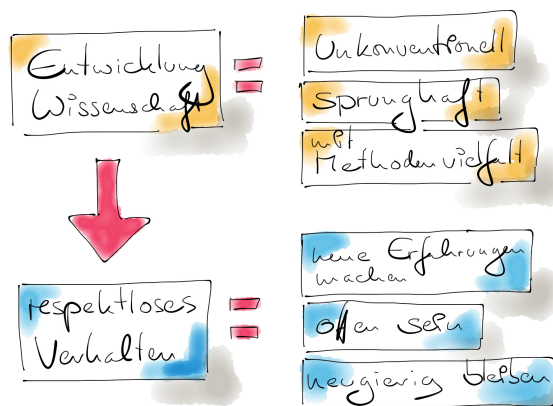 Entwicklung
Wissenschaft
=
Unkonventionell
sprunghaft
mit
Methodenvielfalt
respektloses
Verhalten
=
neue Erfahrungen
machen
offen sein
neugierig bleiben